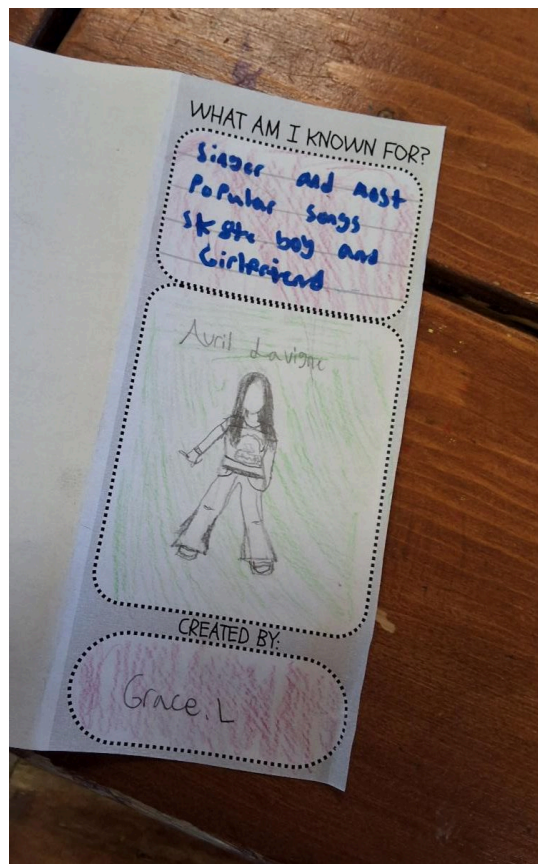 WHAT AM I KNOWN FOR?
Singer and most
Popular songs
sk8te boy and
Girlfriend
Avril Lavigne
CREATED BY:
Grace. L